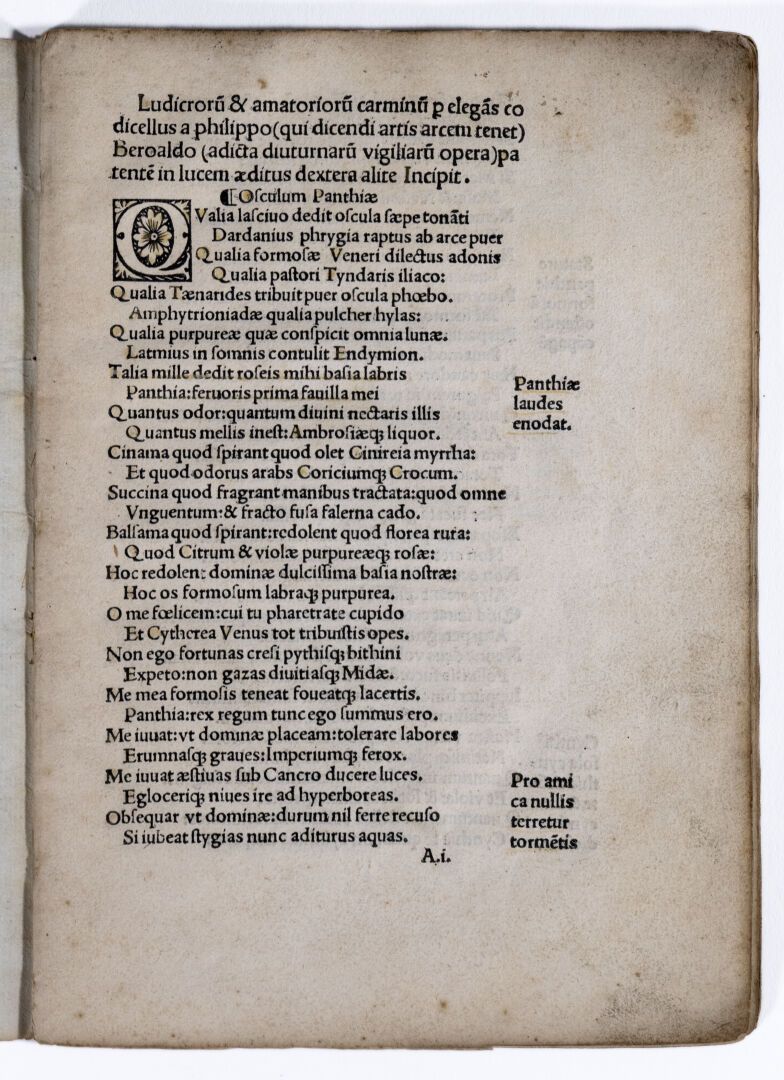 Ludicrorū & amatoriorū carminū ꝑ elegãs co
dicellus a philippo(qui dicendi artis arcem tenet)
Beroaldo (adicta diuturnarū vigiliarū opera)pa
tentẽ in lucem æditus dextera alite Incipit.
⁋Oſculum Panthiæ
QValia laſciuo dedit oſcula ſæpe tonãti
Dardanius phrygia raptus ab arce puer
Qualia formoſæ Veneri dilectus adonis
Qualia paſtori Tyndaris iliaco:
Qualia Tænarides tribuit puer oſcula phœbo.
Amphytrioniadæ qualia pulcher hylas:
Qualia purpureæ quæ conſpicit omnia lunæ.
Latmius in ſomnis contulit Endymion.
Talia mille dedit roſeis mihi baſia labris
Panthia:feruoris prima fauilla mei
Panthiæ
laudes
enodat.
Quantus odor:quantum diuini nectaris illis
Quantus mellis ineſt:Ambroſiæqꝫ liquor.
Cinama quod ſpirant quod olet Cinireia myrrha:
Et quod odorus arabs Coriciumqꝫ Crocum.
Succina quod fragrant manibus tractata:quod omne
Vnguentum:& fracto fuſa falerna cado.
Balſama quod ſpirant:redolent quod florea rura:
Quod Citrum & violæ purpureæqꝫ roſæ:
Hoc redolent dominæ dulciſſima baſia noſtræ:
Hoc os formoſum labraqꝫ purpurea.
O me fœlicem:cui tu pharetrate cupido
Et Cytherea Venus tot tribuiſtis opes.
Non ego fortunas creſi pythiſqꝫ bithini
Expeto:non gazas diuitiaſqꝫ Midæ.
Me mea formoſis teneat foueatqꝫ lacertis.
Panthia:rex regum tunc ego ſummus ero.
Me iuuat:vt dominæ placeam:tolerare labores
Erumnaſqꝫ graues:Imperiumqꝫ ferox.
Me iuuat æſtiuas ſub Cancro ducere luces.
Egloceriqꝫ niues ire ad hyperboreas.
Obſequar vt dominæ:durum nil ferre recuſo
Si iubeat ſtygias nunc aditurus aquas.
Pro ami
ca nullis
terretur
tormẽtis
A.i.